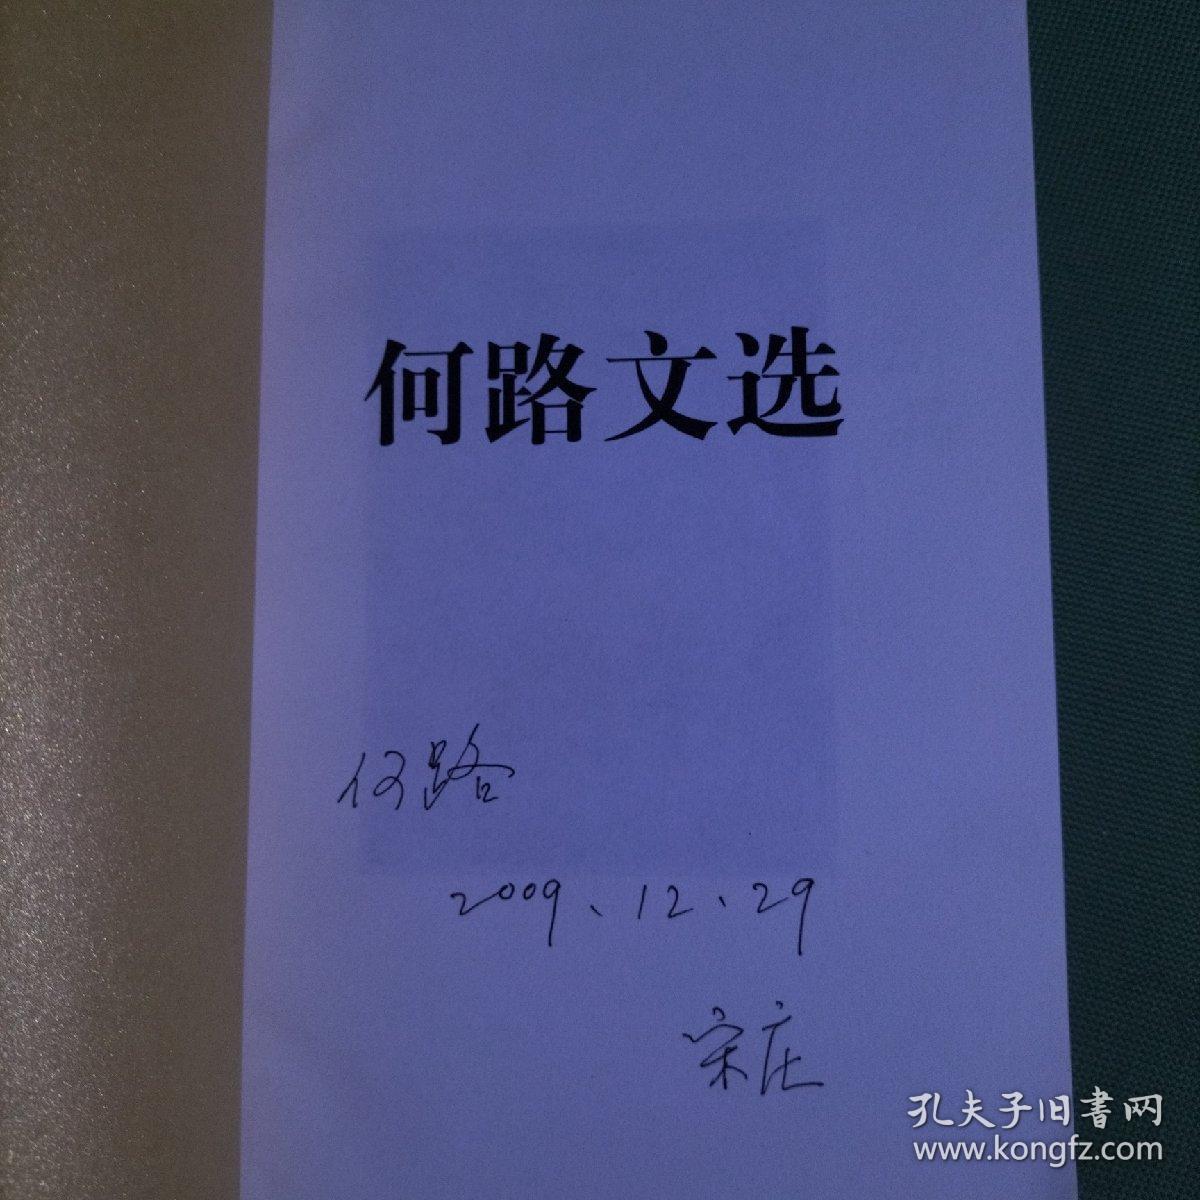 何路文选
何路
2009、12、29
宋庄
孔夫子旧书网
www.kongfz.com